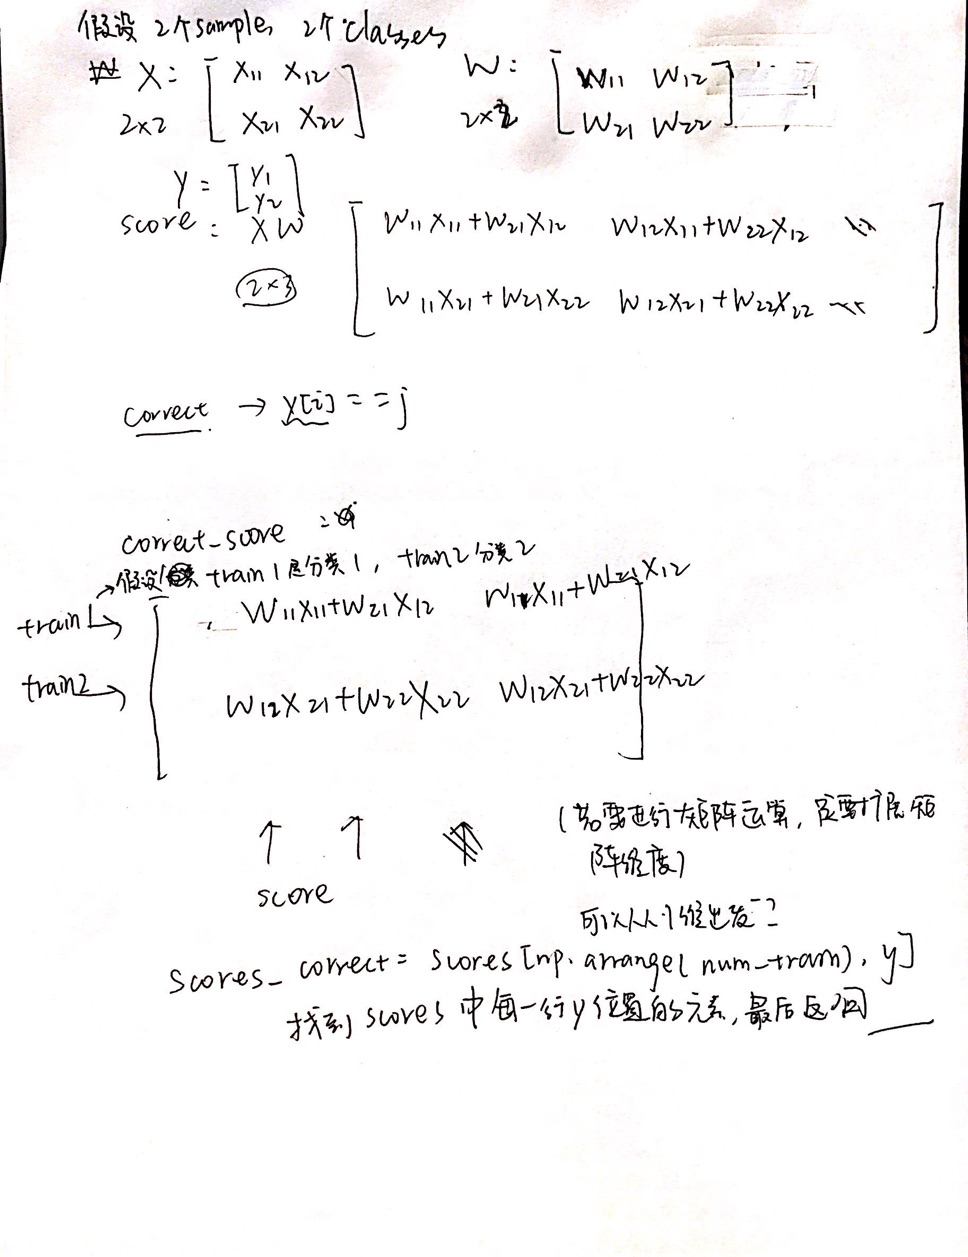 假设 2个samples 2个classes
X: [ X11 X12
2×2 X21 X22 ]
W: [ W11 W12
2×2 W21 W22 ]
y = [ y1
y2 ]
score: XW
2×3
[ W11X11+W21X12 W12X11+W22X12
W11X21+W21X22 W12X21+W22X22 ]
correct → y[i] == j
correct_score =
假设 train1是分类1, train2分类2
train1→ [ W11X11+W21X12 W11X11+W21X12
train2→ W12X21+W22X22 W12X21+W22X22 ]
↑ ↑
score
(若要进行矩阵运算, 定要扩展矩
阵维度)
可以从1维出发
scores_correct = scores[np.arrange(num_train), y]
找到 scores 中每一行y位置的元素,最后返回